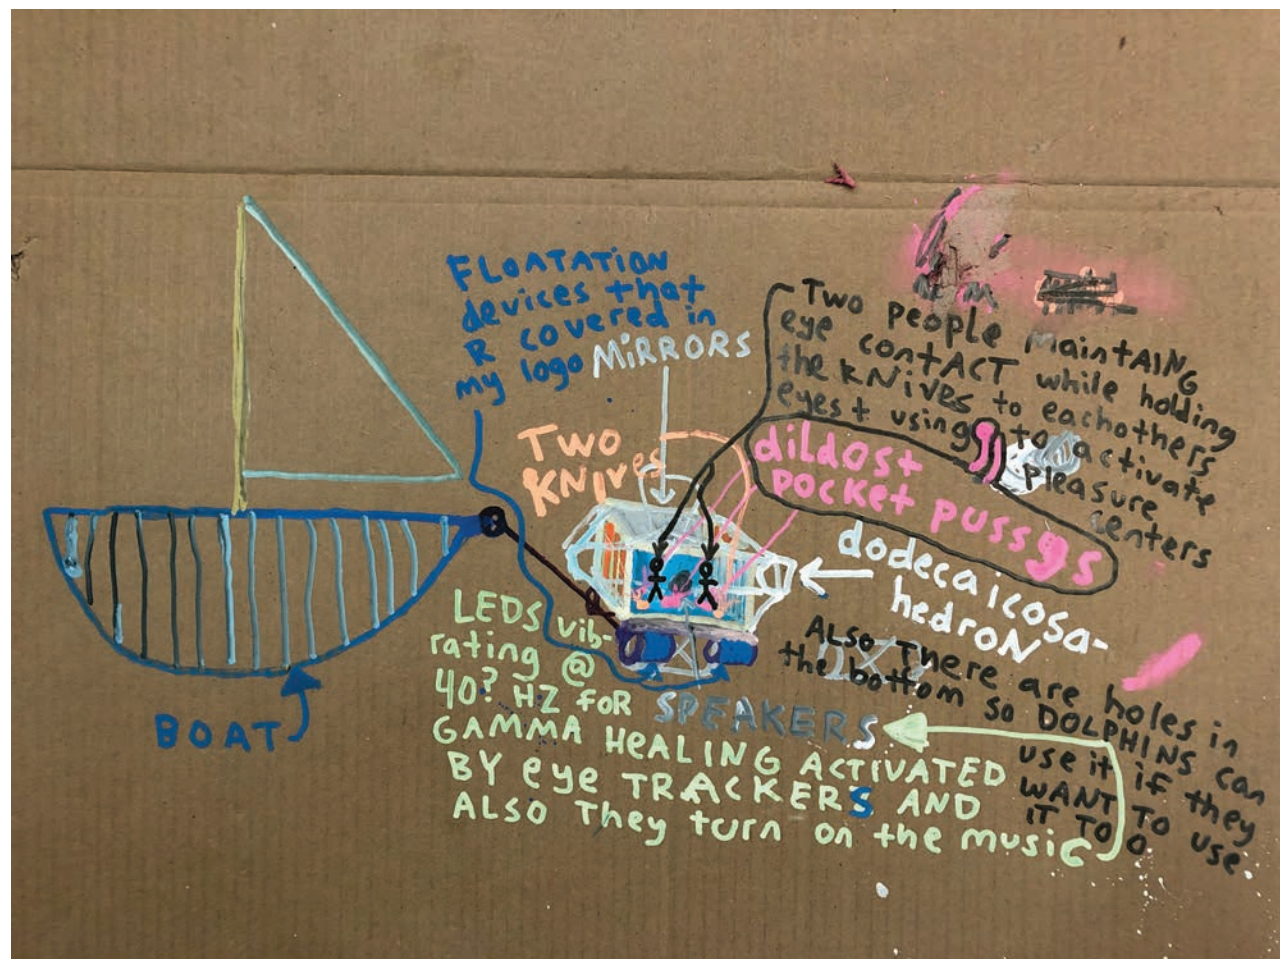 FLOATATION
devices that
R covered in
my logo
MIRRORS
TWO
KNives
Two people MaintAING
eye contACT while holding
the KNives to eachothers
eyes + using to activate
pleasure
centers
dildos+
pocket pussys
dodecaicosa-
hedroN
ALSO There are holes in
the bottom so DOLPHINS can
use it if they
WANT TO use
IT TOO
LEDS vib-
rating @
40? HZ foR
SPEAKERS
GAMMA HEALING ACTIVATED
BY eye TRACKERS AND
ALSO They turn on the music
BOAT